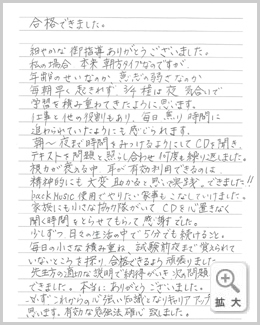 合格できました。
細やかな御指導ありがとうございました。
私の場合 本来 朝方タイプなのですが、
年齢のせいなのか 意志の弱さなのか
毎朝早く起きれず、3/4程は夜 気合いで
学習を積み重ねてきたように思います。
仕事も他の役割もあり、毎日限り時間に
追われていたようにも感じられます。
朝〜夜まで時間をみつけるようにしてCDを聞き、
テキストを問題と照らし合わせ何度も繰り返しました。
視力が衰える中 耳が有効利用できるのは、
精神的にも大変助かると思い 実践できました!!
back Music 使用でやりたい家事もこなしていけました。
家族にも小さな協力隊がいて CDを心置きなく
聞く時間をとらせてもらって感謝でした。
少しずつ 日々の生活の中で 5分でも続けること。
毎日の小さな積み重ね、試験前夜まで覚えられて
いないところを探り、合格できるよう頑張りました。
先生方の適切な説明で納得がいき 次の問題
できました。本当にありがとうございました。
これからの心強い知識となりキャリアアップ
思います。有効な勉強法 確心 致しました。
拡大